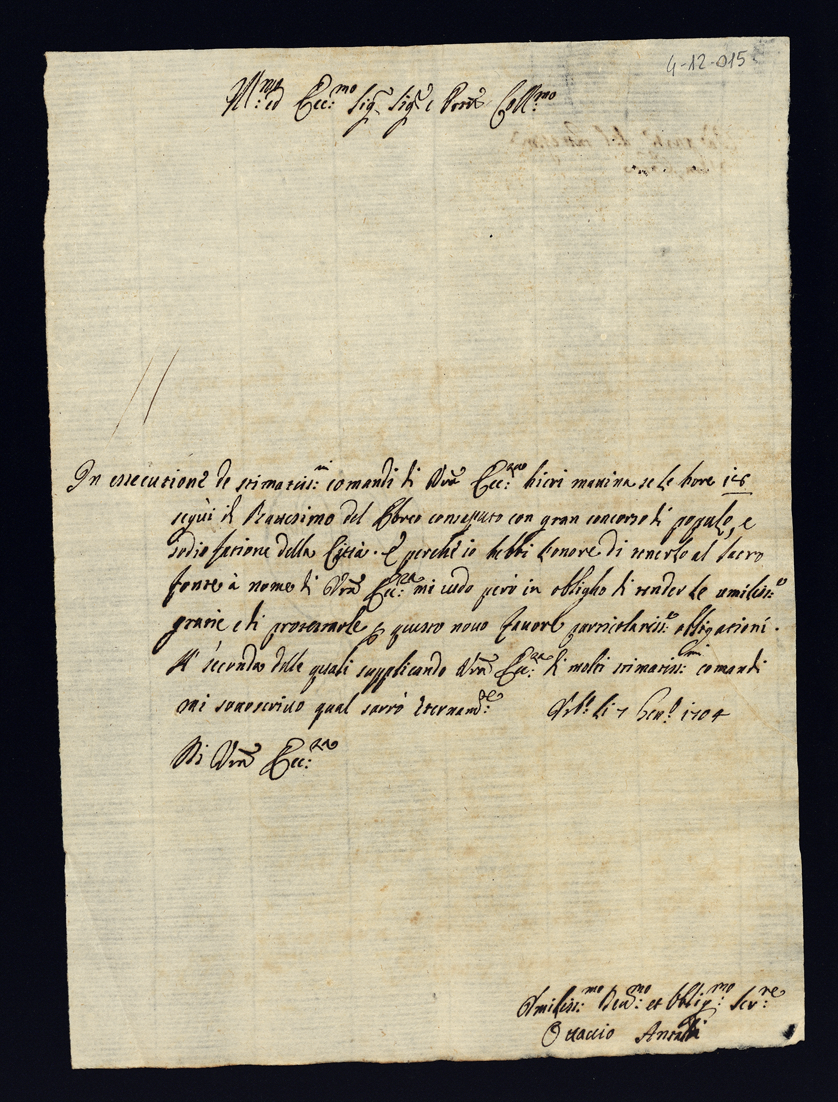 4-12-015
Ill:mo ed Ecc:mo Sig.r Sig.r e Pron.e Coll:mo
In essecutione de stimatiss:mi comandi di Vra Ecc:za hieri matina se le hore
seguì il Battesimo del Ebreo con gran concorso di popolo, e
sodisfatione della Città. E perche io hebbi l'onore di tenerlo al Sacro
fonte à nome di Vra Ecc:za mi vedo però in obligho di render le umiliss:e
gratie e di protestarle p questo novo favore particolariss:e obligationi.
A seconda delle quali supplicando Vra Ecc:za di molti stimatiss:mi comandi
mi sottoscrivo qual sarrò eternam:te Urb:o li 7 Gen:o 1704
Di Vra Ecc:za
Umiliss:mo Deu:mo et Oblig:mo Ser:re
Ottavio Antaldi